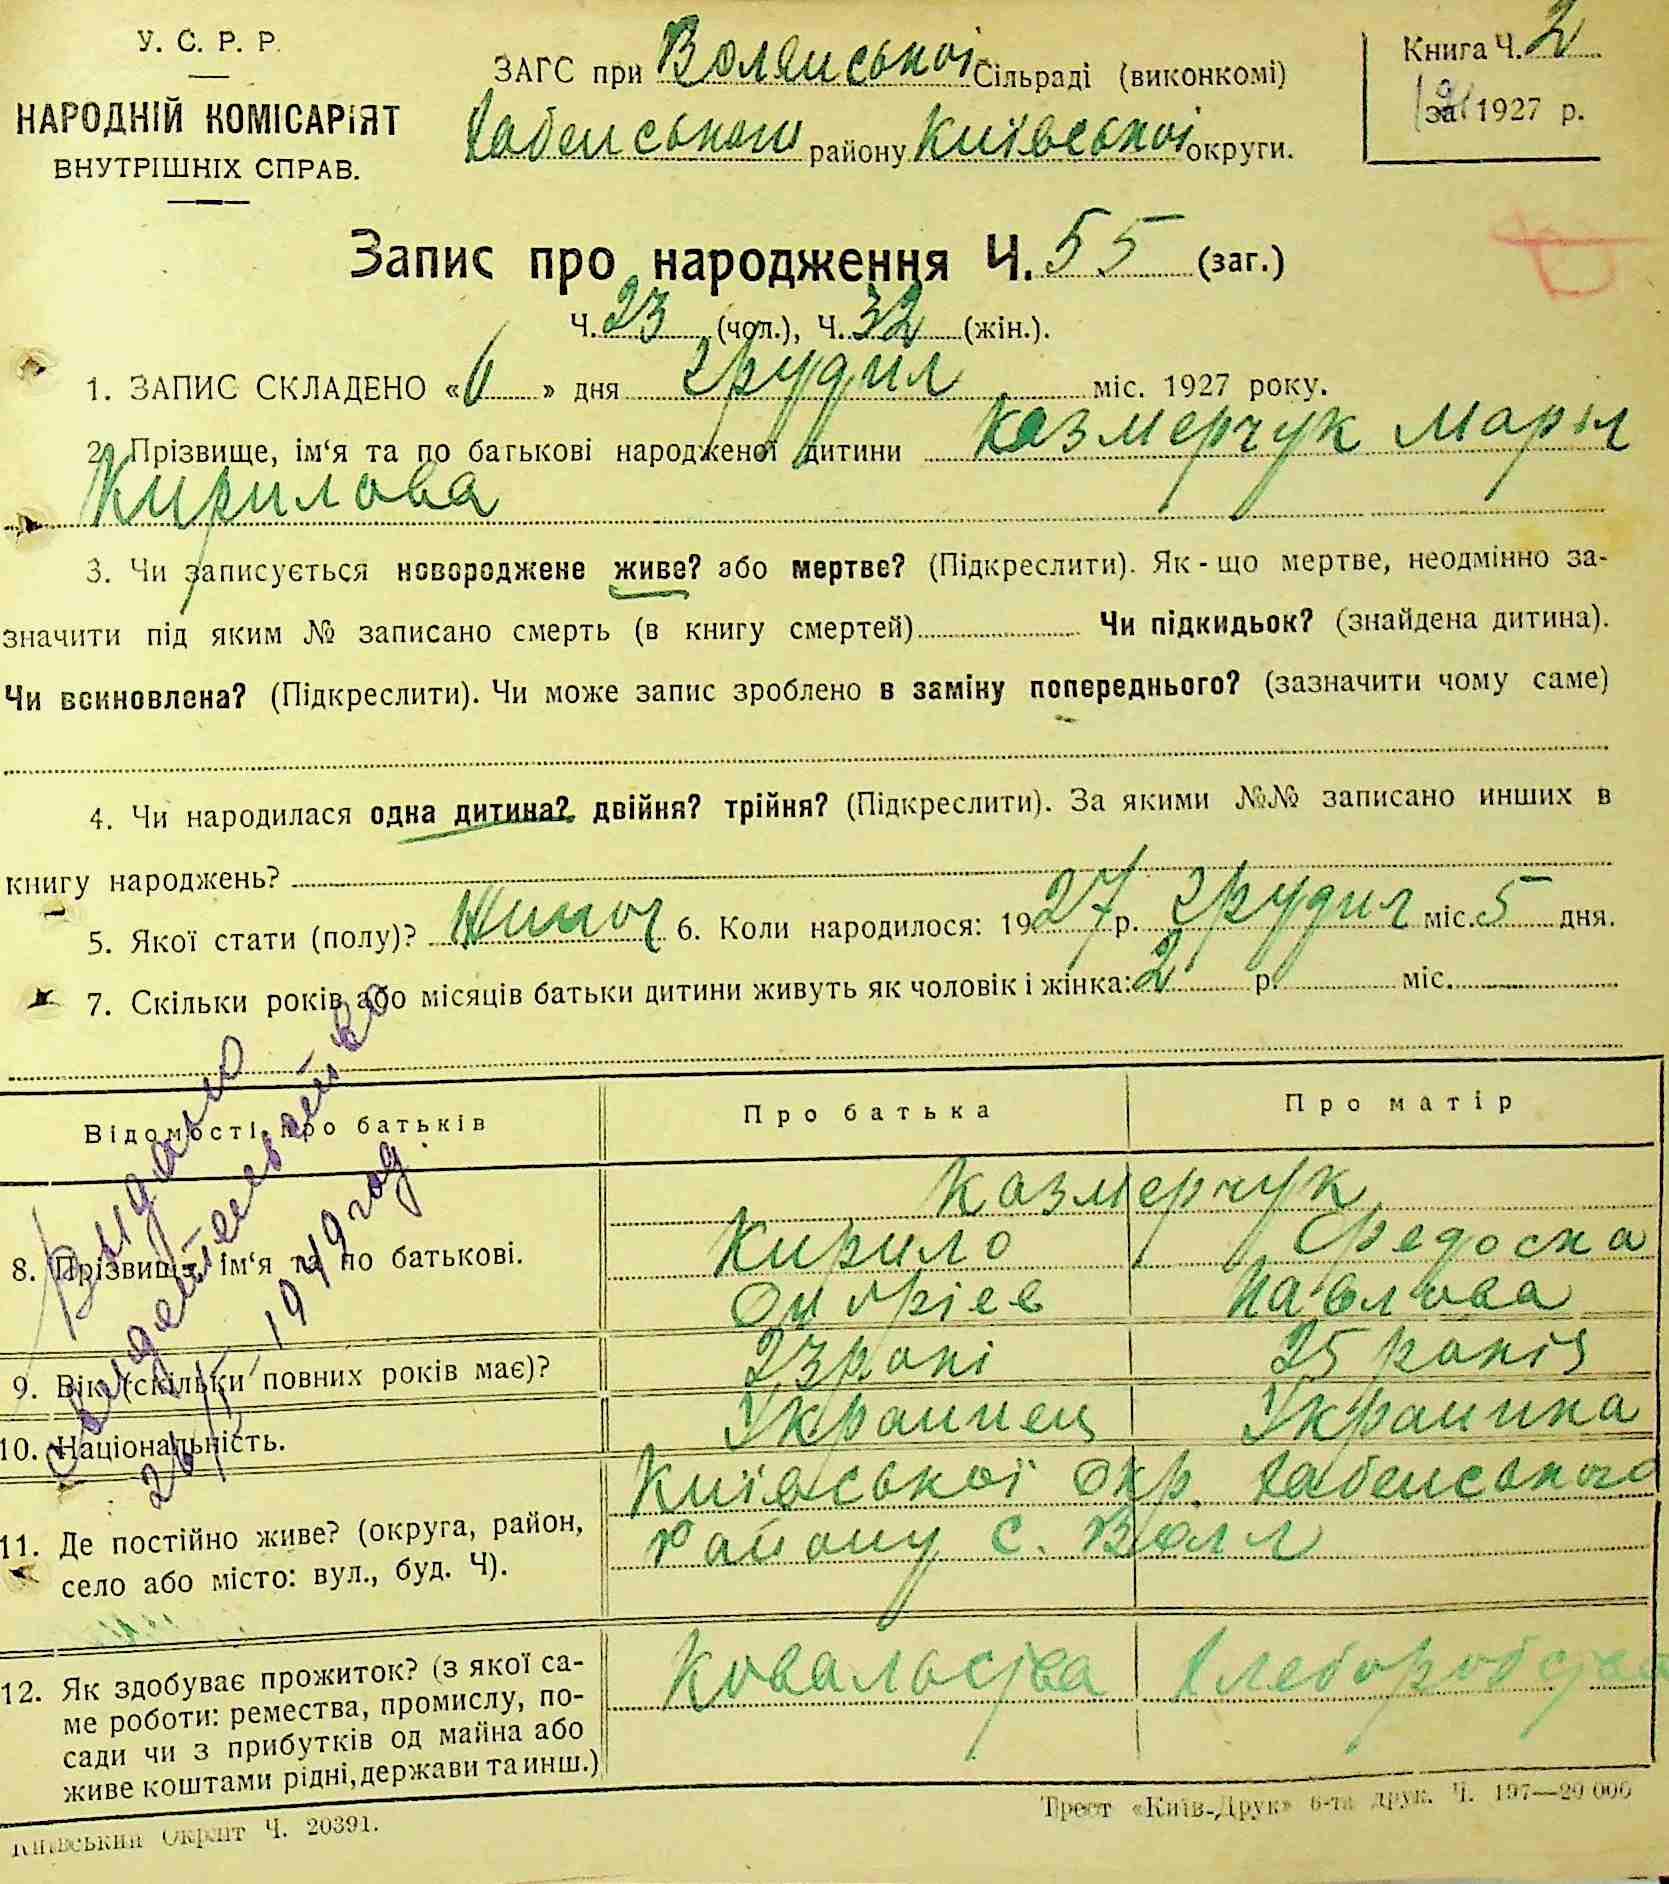 У. С. Р. Р.
НАРОДНІЙ КОМІСАРІЯТ
ВНУТРІШНІХ СПРАВ.
ЗАГС при Волянської Сільраді (виконкомі)
Хабенського району Київської округи.
Книга Ч. 2
за 1927 р.
Запис про народження Ч. 55 (заг.)
Ч. 23 (чол.), Ч. 32 (жін.).
1. ЗАПИС СКЛАДЕНО «6» дня грудня міс. 1927 року.
2. Прізвище, ім‘я та по батькові народженої дитини Казмерчук Марія
Кирилова
3. Чи записується новороджене живе? або мертве? (Підкреслити). Як-що мертве, неодмінно за-
значити під яким № записано смерть (в книгу смертей) Чи підкидьок? (знайдена дитина).
Чи всиновлена? (Підкреслити). Чи може запис зроблено в заміну попереднього? (зазначити чому саме)
4. Чи народилася одна дитина? двійня? трійня? (Підкреслити). За якими №№ записано инших в
книгу народжень?
5. Якої стати (полу)? Жиноч 6. Коли народилося: 1927 р. грудня міс. 5 дня.
7. Скільки років або місяців батьки дитини живуть як чоловік і жінка: 2 р. міс.
Відомості про батьків Про батька Про матір
Видано
свидетельство
26/V 1949 год.
8. Прізвище, ім‘я та по батькові.
Казмерчук
Кирило Федоска
Павлова
9. Вік (скільки повних років має)? 23 рокі 25 років
10. Національність. Украинец Украинка
11. Де постійно живе? (округа, район,
село або місто: вул., буд. Ч).
Київської окр. Хабенського
Району с. Воля
12. Як здобуває прожиток? (з якої са-
ме роботи: ремества, промислу, по-
сади чи з прибутків од майна або
живе коштами рідні, держави та инш.)
Ковальства Хлеборобства
Київський Окрліт Ч. 20391.
Трест «Київ-Друк» 6-та друк. Ч. 197—20 000